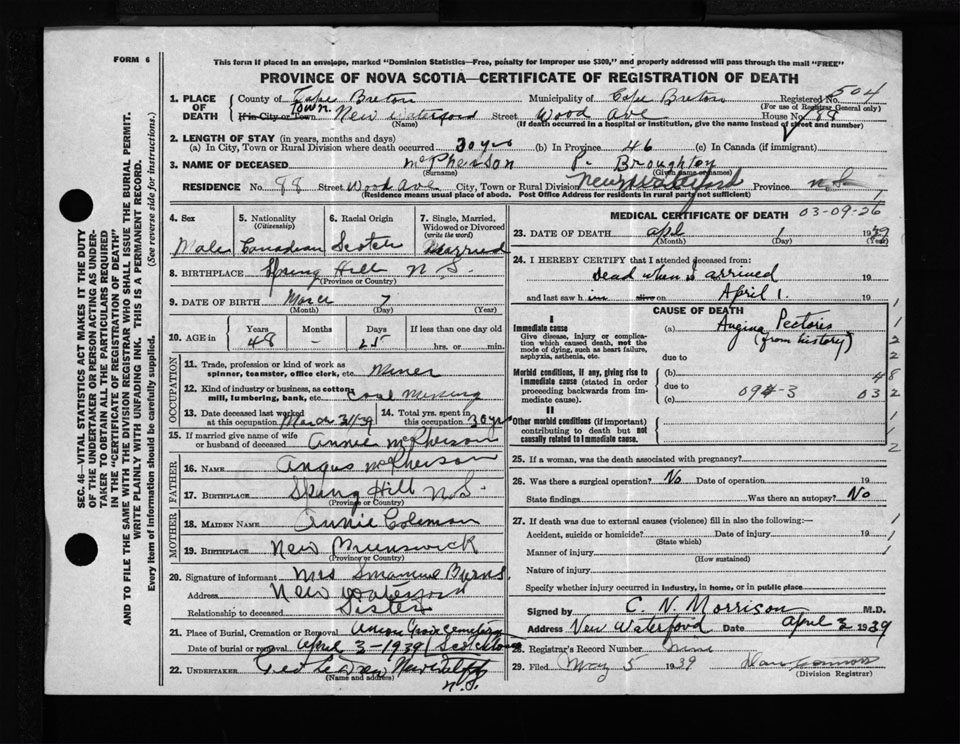 FORM 6
This form if placed in an envelope, marked "Dominion Statistics—Free, penalty for improper use $300," and properly addressed will pass through the mail "FREE"
PROVINCE OF NOVA SCOTIA—CERTIFICATE OF REGISTRATION OF DEATH
504
1. PLACE OF DEATH County of Cape Breton Municipality of Cape Breton Registered No.
(For use of Registrar General only)
Town
If in City or Town New Waterford Street Wood Ave House No. 88
(Name) (If death occurred in a hospital or institution, give the name instead of street and number)
2. LENGTH OF STAY (in years, months and days)
(a) In City, Town or Rural Division where death occurred 30 yrs (b) In Province 46 (c) In Canada (if immigrant)
3. NAME OF DECEASED McPherson P. Broughton
(Surname) (Given name or names)
RESIDENCE No. 88 Street Wood Ave City, Town or Rural Division New Waterford Province N.S.
(Residence means usual place of abode. Post Office Address for residents in rural part not sufficient)
4. Sex 5. Nationality (Citizenship) 6. Racial Origin 7. Single, Married, Widowed or Divorced (write the word)
Male Canadian Scotch Married
8. BIRTHPLACE Spring Hill N.S.
(Province or Country)
9. DATE OF BIRTH March 7
(Month) (Day) (Year)
10. AGE in Years Months Days If less than one day old
48 - 25 hrs. or min.
OCCUPATION
11. Trade, profession or kind of work as spinner, teamster, office clerk, etc. Miner
12. Kind of industry or business, as cotton mill, lumbering, bank, etc. Coal Mining
13. Date deceased last worked at this occupation March 31/39 14. Total yrs. spent in this occupation 30 yrs
15. If married give name of wife or husband of deceased Annie McPherson
FATHER
16. NAME Angus McPherson
17. BIRTHPLACE Spring Hill N.S.
(Province or Country)
MOTHER
18. MAIDEN NAME Annie Coleman
19. BIRTHPLACE New Brunswick
(Province or Country)
20. Signature of informant Mrs Byrns.
Address New Waterford
Relationship to deceased Sister
21. Place of Burial, Cremation or Removal Cemetery
Date of burial or removal April 3-1939
22. UNDERTAKER New Waterford N.S.
(Name and address)
MEDICAL CERTIFICATE OF DEATH 03-09-26
23. DATE OF DEATH Apl 1 1939
(Month) (Day) (Year)
24. I HEREBY CERTIFY that I attended deceased from:
Dead when I arrived 19
and last saw him alive on April 1. 19
CAUSE OF DEATH
I
Immediate cause (a) Angina Pectoris
(from history)
Give disease, injury or complication which caused death, not the mode of dying, such as heart failure, asphyxia, asthenia, etc.
due to
Morbid conditions, if any, giving rise to immediate cause (stated in order proceeding backwards from immediate cause).
(b)
due to
(c) 094-3 032
II
Other morbid conditions (if important) contributing to death but not causally related to immediate cause.
25. If a woman, was the death associated with pregnancy?
26. Was there a surgical operation? No Date of operation 19
State findings Was there an autopsy? No
27. If death was due to external causes (violence) fill in also the following:—
Accident, suicide or homicide? Date of injury 19
(State which)
Manner of injury
(How sustained)
Nature of injury
Specify whether injury occurred in industry, in home, or in public place
Signed by C. N. Morrison M.D.
Address New Waterford Date April 3 1939
28. Registrar's Record Number
29. Filed May 5 1939
(Division Registrar)
SEC. 46—VITAL STATISTICS ACT MAKES IT THE DUTY
OF THE UNDERTAKER OR PERSON ACTING AS UNDERTAKER
TO OBTAIN ALL THE PARTICULARS REQUIRED
IN THE "CERTIFICATE OF REGISTRATION OF DEATH"
AND TO FILE THE SAME WITH THE DIVISION REGISTRAR WHO SHALL ISSUE THE BURIAL PERMIT.
WRITE PLAINLY WITH UNFADING INK. THIS IS A PERMANENT RECORD.
Every item of information should be carefully supplied. (See reverse side for instructions.)